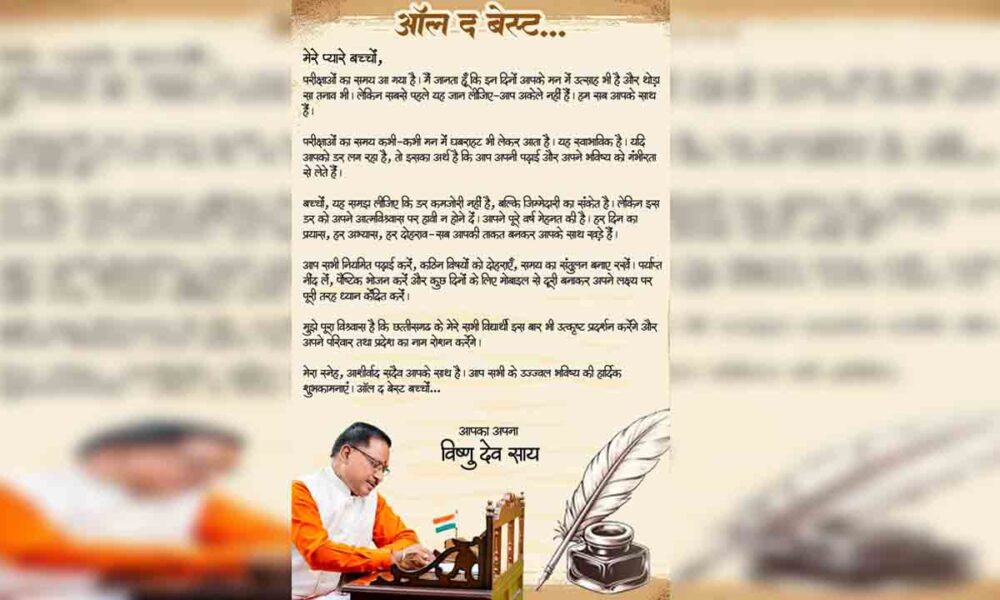 ऑल द बेस्ट...
मेरे प्यारे बच्चों,
परीक्षाओं का समय आ गया है। मैं जानता हूँ कि इन दिनों आपके मन में उत्साह भी है और थोड़ा
सा तनाव भी। लेकिन सबसे पहले यह जान लीजिए-आप अकेले नहीं हैं। हम सब आपके साथ
हैं।
परीक्षाओं का समय कभी-कभी मन में घबराहट भी लेकर आता है। यह स्वाभाविक है। यदि
आपको डर लग रहा है, तो इसका अर्थ है कि आप अपनी पढ़ाई और अपने भविष्य को गंभीरता
से लेते हैं।
बच्चों, यह समझ लीजिए कि डर कमजोरी नहीं है, बल्कि जिम्मेदारी का संकेत है। लेकिन इस
डर को अपने आत्मविश्वास पर हावी न होने दें। आपने पूरे वर्ष मेहनत की है। हर दिन का
प्रयास, हर अभ्यास, हर दोहराव-सब आपकी ताकत बनकर आपके साथ खड़े हैं।
आप सभी नियमित पढ़ाई करें, कठिन विषयों को दोहराएँ, समय का संतुलन बनाए रखें। पर्याप्त
नींद लें, पौष्टिक भोजन करें और कुछ दिनों के लिए मोबाइल से दूरी बनाकर अपने लक्ष्य पर
पूरी तरह ध्यान केंद्रित करें।
मुझे पूरा विश्वास है कि छत्तीसगढ के मेरे सभी विद्यार्थी इस बार भी उत्कृष्ट प्रदर्शन करेंगे और
अपने परिवार तथा प्रदेश का नाम रोशन करेंगे।
मेरा स्नेह, आशीर्वाद सदैव आपके साथ है। आप सभी के उज्ज्वल भविष्य की हार्दिक
शुभकामनाएं। ऑल द बेस्ट बच्चों...
आपका अपना
विष्णु देव साय